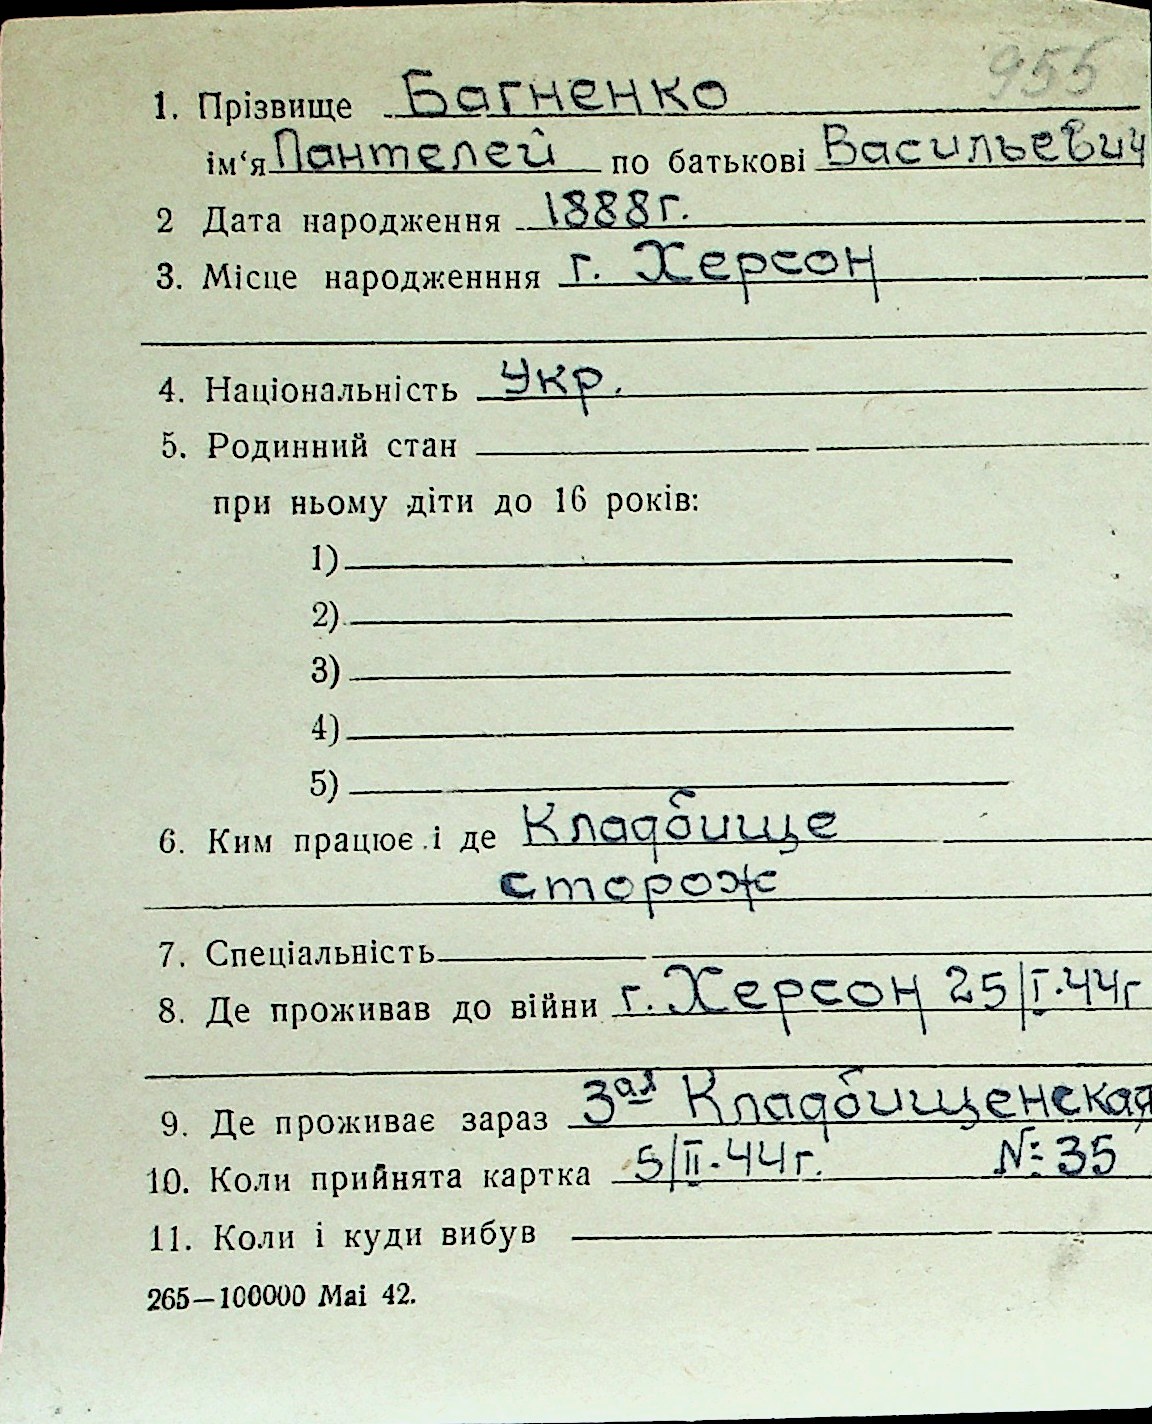 955
1. Прізвище Багненко
ім‘я Пантелей по батькові Васильевич
2 Дата народження 1888г.
3. Місце народженння г. Херсон
4. Національність Укр.
5. Родинний стан
при ньому діти до 16 років:
1)
2)
3)
4)
5)
6. Ким працює і де Кладбище
сторож
7. Спеціальність
8. Де проживав до війни г. Херсон 25/I.44г
9. Де проживає зараз 3ая Кладбищенская
10. Коли прийнята картка 5/II.44г. № 35
11. Коли і куди вибув
265—100000 Mai 42.